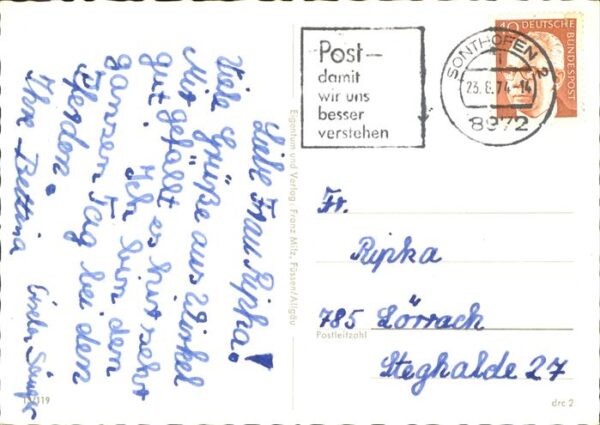 Liebe Frau Ripka!
Viele Grüße aus Winkel
Mir gefällt es hir sehr
gut. Ich bin den
ganzen Tag bei den
Pferden.
Ihre Bettina
11/119
Eigentum und Verlag: Franz Milz, Füssen/Allgäu
Post—
damit
wir uns
besser
verstehen
SONTHOFEN 2
23.8.74-14
8972
40 DEUTSCHE
BUNDESPOST
Fr.
Ripka
785 Lörrach
Postleitzahl
Steghalde 27
drc 2